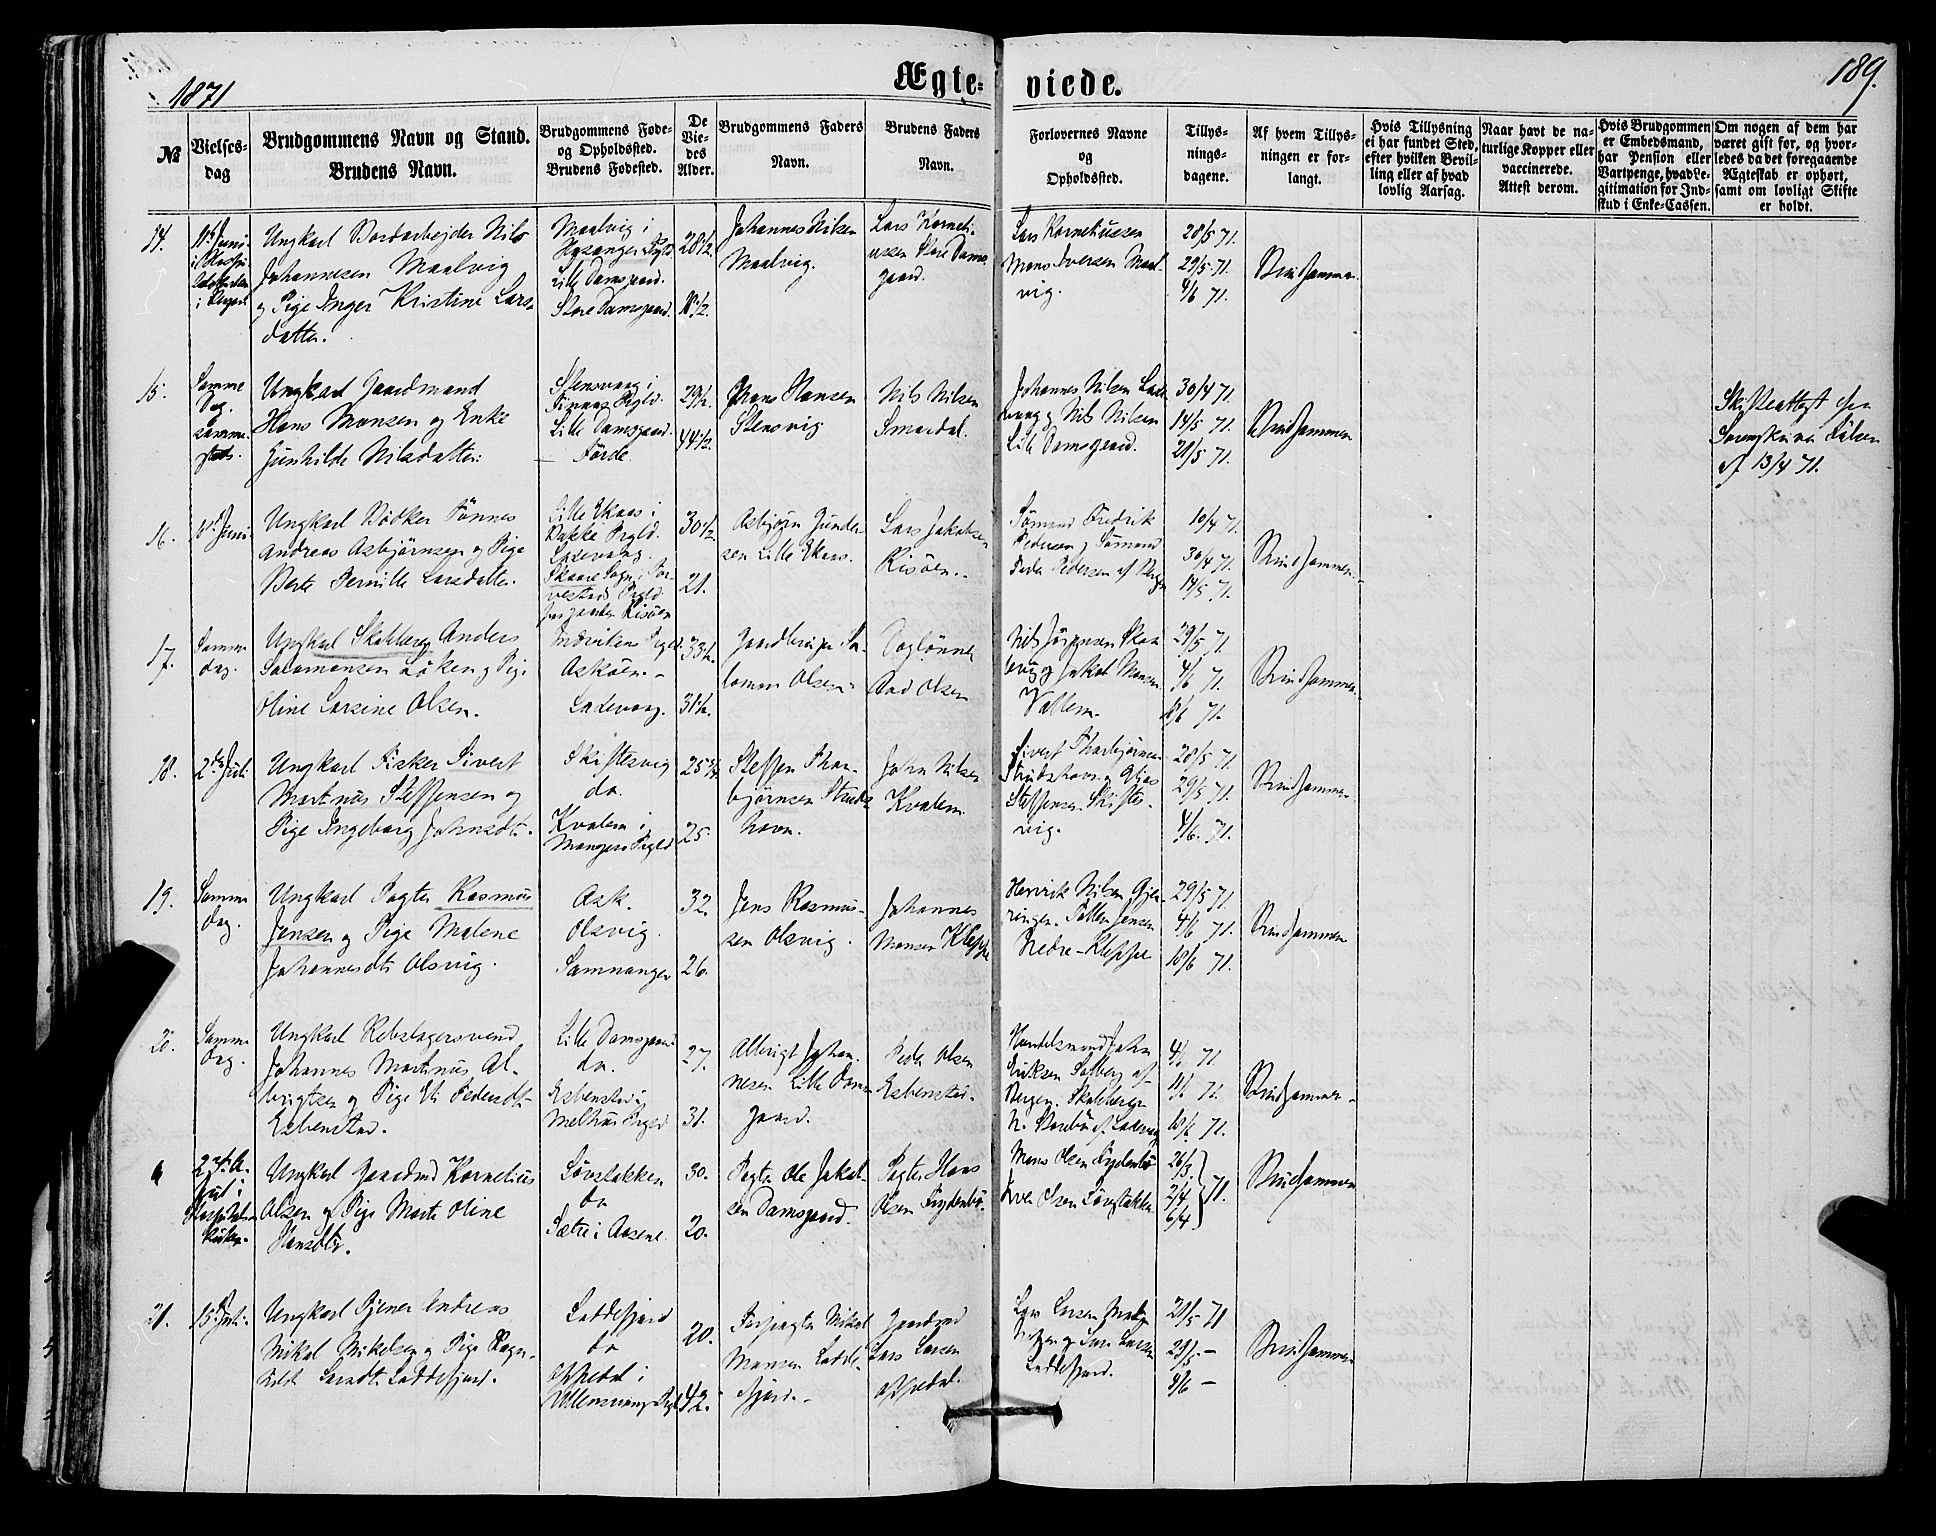 1871
Ægte-
viede.
189.
№
Vielses-
dag
Brudgommens Navn og Stand.
Brudens Navn.
Brudgommens Føde-
og Opholdssted.
Brudens Fødested.
De
Vie-
des
Alder.
Brudgommens Faders
Navn.
Brudens Faders
Navn.
Forlovernes Navne
og
Opholdssted.
Tillys-
nings-
dagene.
Af hvem Tillys-
ningen er for-
langt.
Hvis Tillysning
ei har fundet Sted,
efter hvilken Bevil-
ling eller af hvad
lovlig Aarsag.
Naar havt de na-
turlige Kopper eller
vaccinerede.
Attest derom.
Hvis Brudgommen
er Embedsmand,
har Pension eller
Vartpenge, hvad Le-
gitimation for Ind-
skud i Enke-Cassen.
Om nogen af dem har
været gift før, og hvor-
ledes da det foregaaende
Ægteskab er ophørt,
samt om lovligt Skifte
er holdt.
14.
Ungkarl Bordarbejder Nils
Johannesen Maalvig
og Pige Inger Kristine Lars-
datter.
Maalvig i
Lille Damsgaard.
Store Damsgaard.
28 1/2.
18 1/2.
Johannes Nilsen
Maalvig.
Lars Korneli-
ussen Store Dams-
gaard.
Lars Korneliussen
Mons Iversen Maal-
vig.
28/5 71.
29/5 71.
4/6 71.
Brudgommen
15.
Samme
Dag.
samme
Sted.
Ungkarl Gaardmand
Hans Monsen og Enke
Gunhilde Nilsdatter.
Stensvaag i
Finnaas Prgld.
Lille Damsgaard.
Førde.
29 1/2.
44 1/2.
Hansen
Stensvig
Nils Nilsen
Smørdal.
Johannes Nilsen
Nils Nilsen
Lille Damsgaard.
30/4 71.
14/5 71.
21/5 71.
Brudgommen
Skifteattest fra
af 13/4 71.
16.
Juni
Ungkarl Bødker Tønnes
Andreas Asbjørnsen og Pige
Berte Pernille Larsdatter.
Lille Ekaas i
Bakke Prgld.
Ladevaag.
Skaare Sogn i Tor-
vestad Prgld.
30 1/2.
21.
Asbjørn Gunder-
sen Lille Ekaas.
Lars Jakobsen
Risøen.
Sømand Fredrik
Pedersen og Sømand
Peder Pedersen af Bergen
10/4 71.
30/4 71.
14/5 71.
Brudgommen
17.
Samme
Dag.
Ungkarl Skoleberer Anders
Salamonsen Løken og Pige
Oline Larsine Olsen.
Askøen
Ladevaag.
33 1/2.
31 1/2.
Gaardbruger Sa-
lomon Olsen
Daglønner
Olsen
Nils Jørgensen
Jakob Monsen
Vallem.
29/5 71.
4/6 71.
71.
Brudgommen
18.
2den Juli
Ungkarl Fisker Sivert
Martinus Steffensen og
Pige Ingeborg Johnsdt.
Skiftesvig
do.
Kvalem i
Mangers Prgld
25
25.
Steffen Thor-
bjørnsen Struds-
havn.
John Nilsen
Kvalem.
Sivert Thorbjørnsen
Strudshavn og Elias
Steffensen Skiftes-
vig.
28/5 71.
29/5 71.
4/6. 71.
Brudgommen
19.
Samme
Dag.
Ungkarl Pagter Rasmus
Jensen og Pige Malene
Johannesdt. Olsvig.
Ask.
Olsvig.
Samnanger
32.
26.
Jens Rasmus-
sen Olsvig.
Johannes
Monsen Kleppe
Henrik Nilsen Gjer-
ringen. Jensen
Nedre-Kleppe
29/5 71.
4/6 71.
18/6 71.
Brudgommen
20.
Samme
Dag.
Ungkarl Rebslagersvend
Johannes Martinus Al-
brigtsen og Pige Eli Pedersdt.
Esbenstad.
Lille Damsgaard
do.
Esbenstad i
Melhus Prgld
27.
31.
Albrigt Johan-
nesen Lille Dams-
gaard.
Peder Olsen
Esbenstad.
Handelsmand John
Eriksen Solberg af
Bergen. Skoleberer
4/6 71.
11/6 71.
18/6 71.
Brudgommen
Juli i
Ungkarl Gaardmd Kornelius
Olsen og Pige Marte Oline
Hansdtr.
Løvstakken
do
Sætre i Aasene
30.
20.
Pagter Ole Jakob-
sen Damsgaard.
Pagter Hans
Olsen Frydenbø.
Mons Olsen Frydenbø
Iver Olsen Løvstakken
26/3
2/4
6/4
71.
Brudgommen
21.
15de Juli.
Ungkarl Tjener Andreas
Mikal Mikelsen og Pige Ragn-
hild Larsdt. Laddefjord.
Laddefjord
do
Ophedal i
Ullensvangs Prgld
20.
42.
Forpagter Mikal
Monsen Ladde-
fjord.
Gaardmd
Lars Larsen
Opedal.
Larsen
Lars Larsen
Laddefjord.
21/5 71
29/5 —
4/6 —
Brudgommen